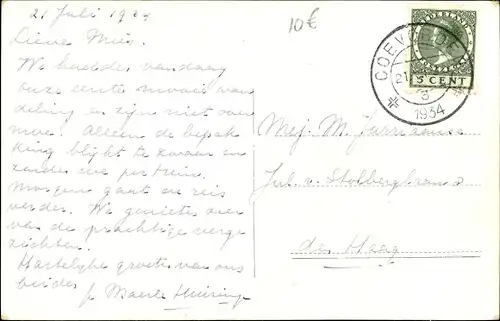 21 Juli 1934
10€
Lieve Mies.
We hadden vandaag
onze eerste mooie wan
deling en zijn niet over
moe. Alleen de bepak
king blijkt te zwaar en
zenden we per trein
Morgen gaat en reis
verder. We genieten zeer
van de prachtige verge
zichten.
Hartelijke groeten van ons
beiden
NEDERLAND
5 CENT
COEVORDEN
21
3
1934
Mej. M. Jurriaanse
Jul. v. Stolberglaan 2
den Haag